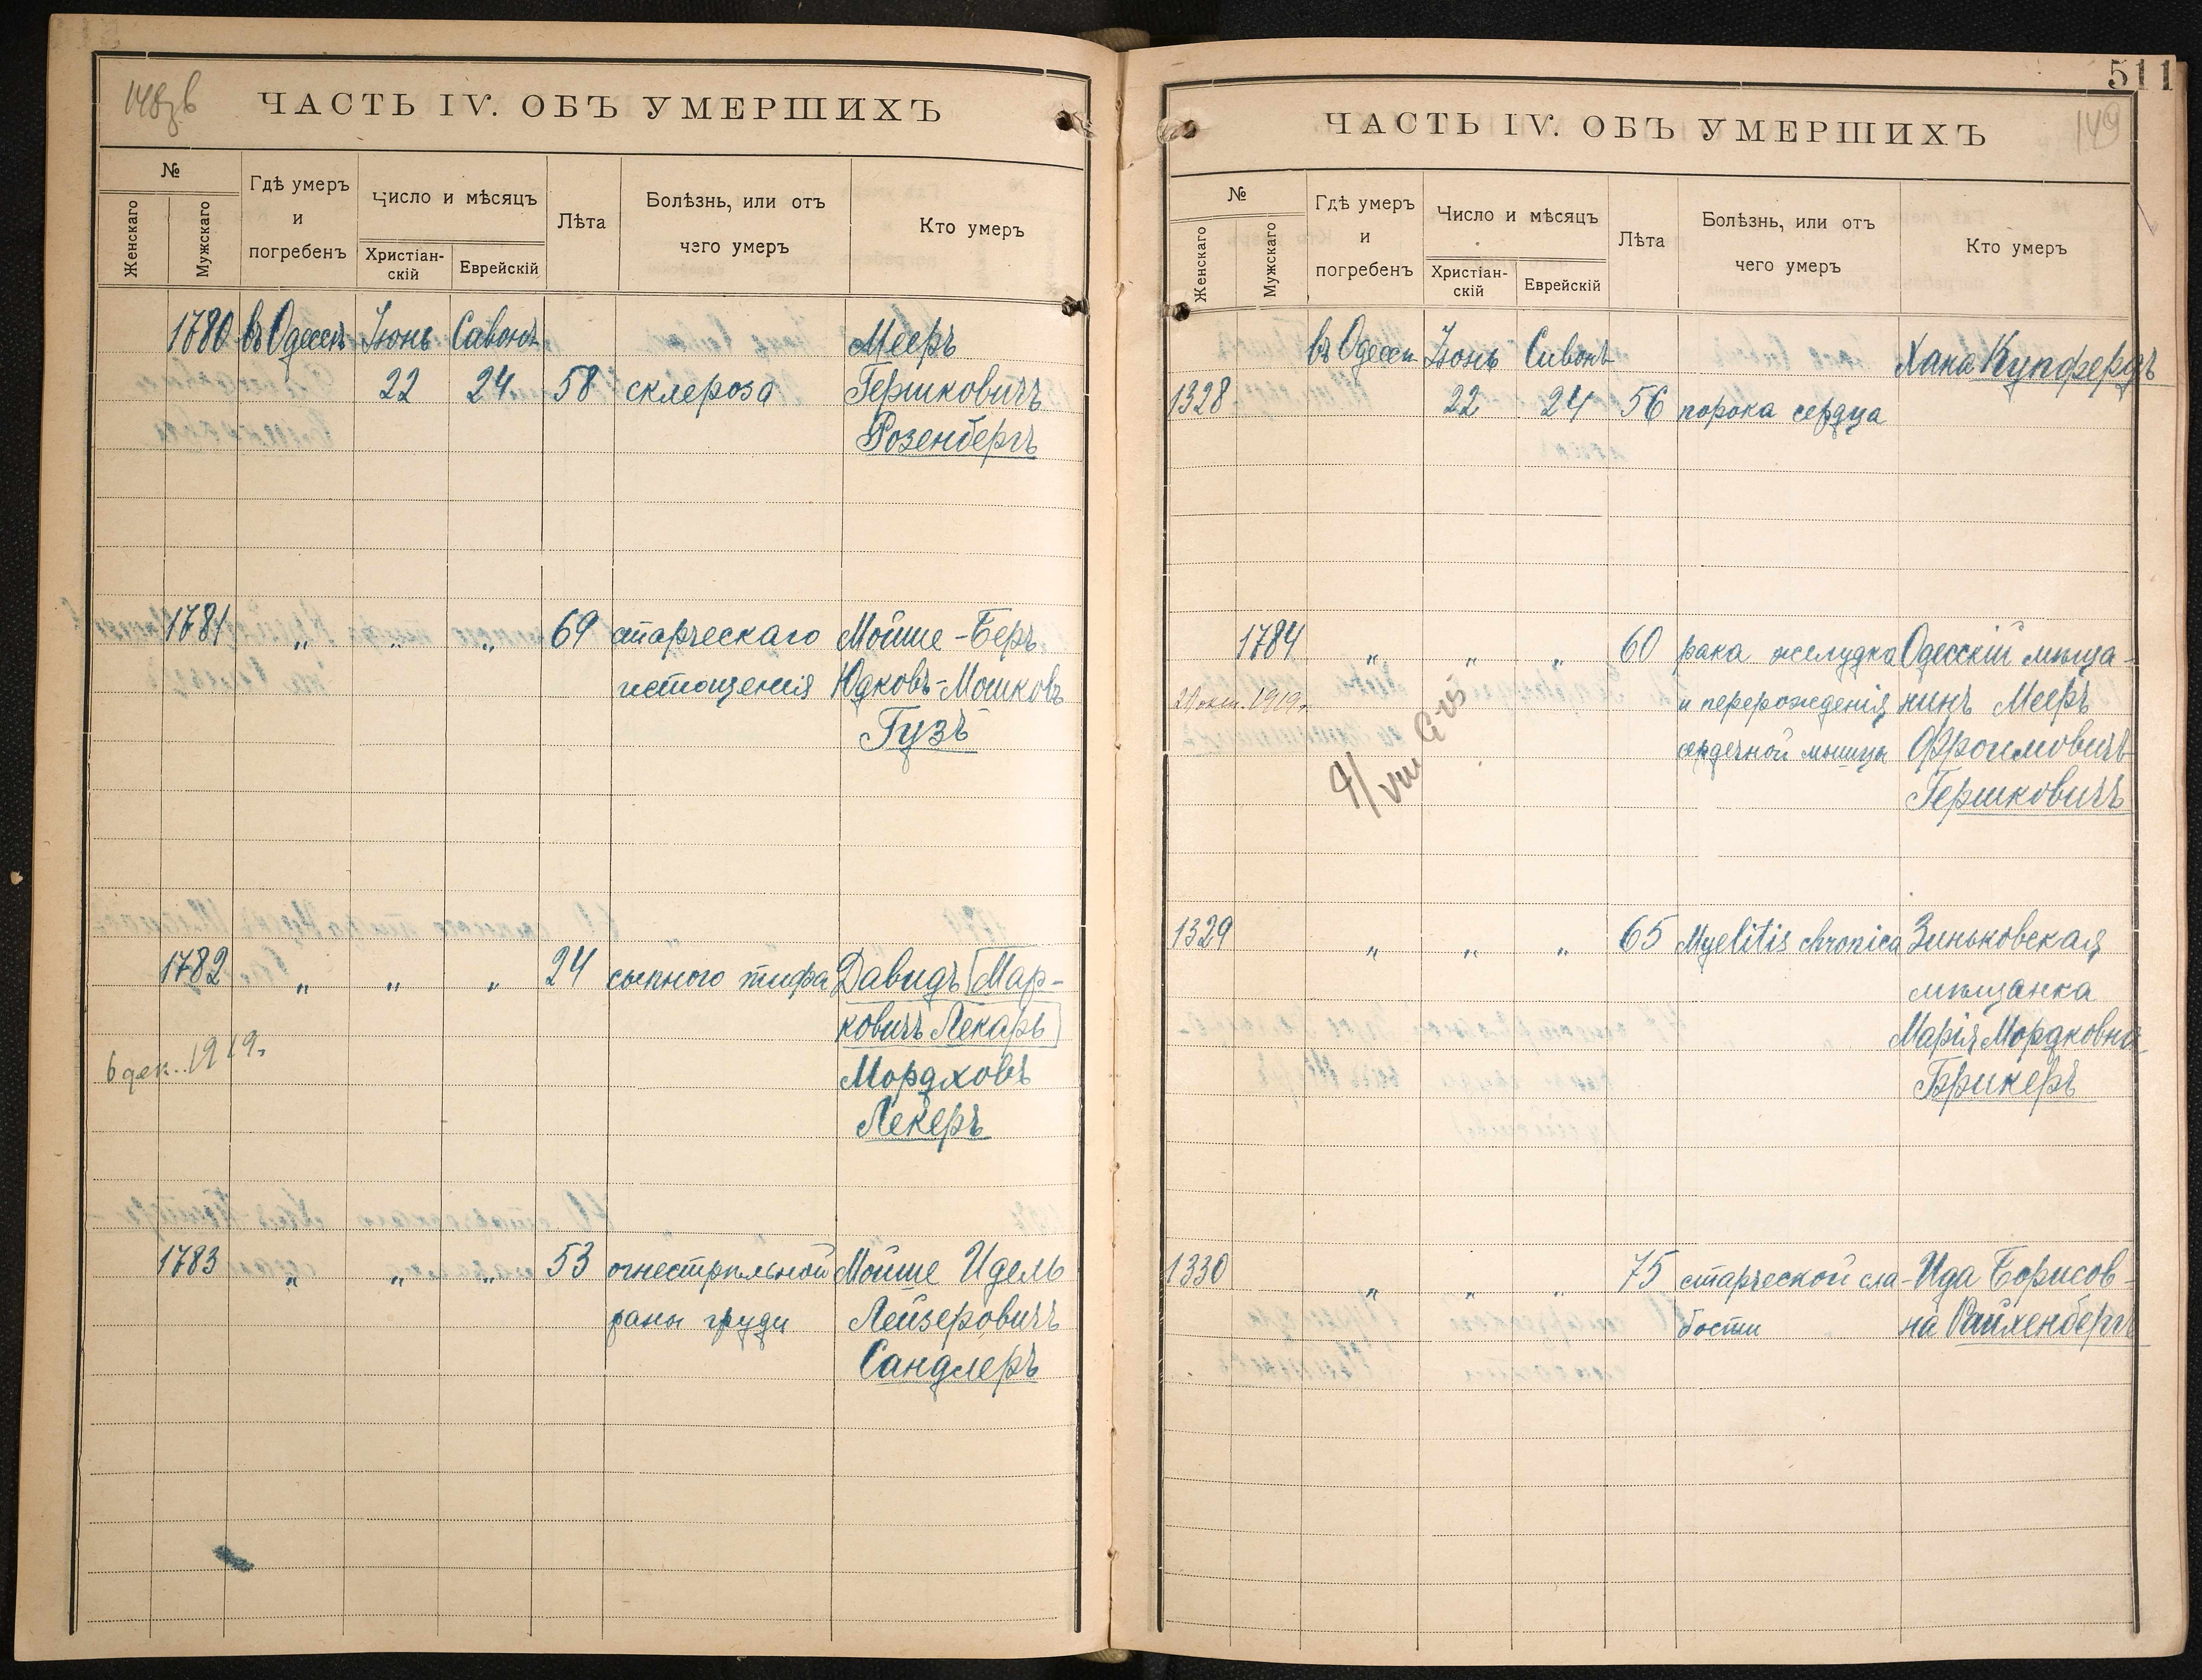 ЧАСТЬ IV. ОБЪ УМЕРШИХЪ
№
Женскаго
Мужскаго
Гдѣ умеръ
и
погребенъ
Число и мѣсяцъ
Христіан-
скій
Еврейскій
Лѣта
Болѣзнь, или отъ
чего умеръ
Кто умеръ
1780 въ Одессѣ Іюнь Сивонъ Мееръ
22 24 58 склероза Гершковичъ
Розенбергъ
1781 " " " 69 старческаго Мойше-Беръ
истощенія Юдковъ-Мошковъ
Гузъ
1782 " " " 24 сыпного тифа Давидъ [Мар-
ковичъ Лекарь]
6 дек. 1919. Мордховъ
Лекеръ
1783 " " " 53 огнестрѣльной Мойше Идель
раны груди Лейзеровичъ
Сандлеръ
511
ЧАСТЬ IV. ОБЪ УМЕРШИХЪ
149
№
Женскаго
Мужскаго
Гдѣ умеръ
и
погребенъ
Число и мѣсяцъ
Христіан-
скій
Еврейскій
Лѣта
Болѣзнь, или отъ
чего умеръ
Кто умеръ
въ Одессѣ Іюнь Сивонъ Хана Купфердъ
1328 22 24 56 порока сердца
1784 " " " 60 рака желудка Одесскій мѣща-
и перерожденія нинъ Мееръ
сердечной мышцы Фроимовичъ
Гершковичъ
1329 " " " 65 Myelitis chronica Зиньковская
мѣщанка
Марія Мордковна
Брикеръ
1330 " " " 75 старческой сла- Ида Борисов-
бости на Райхенбергъ